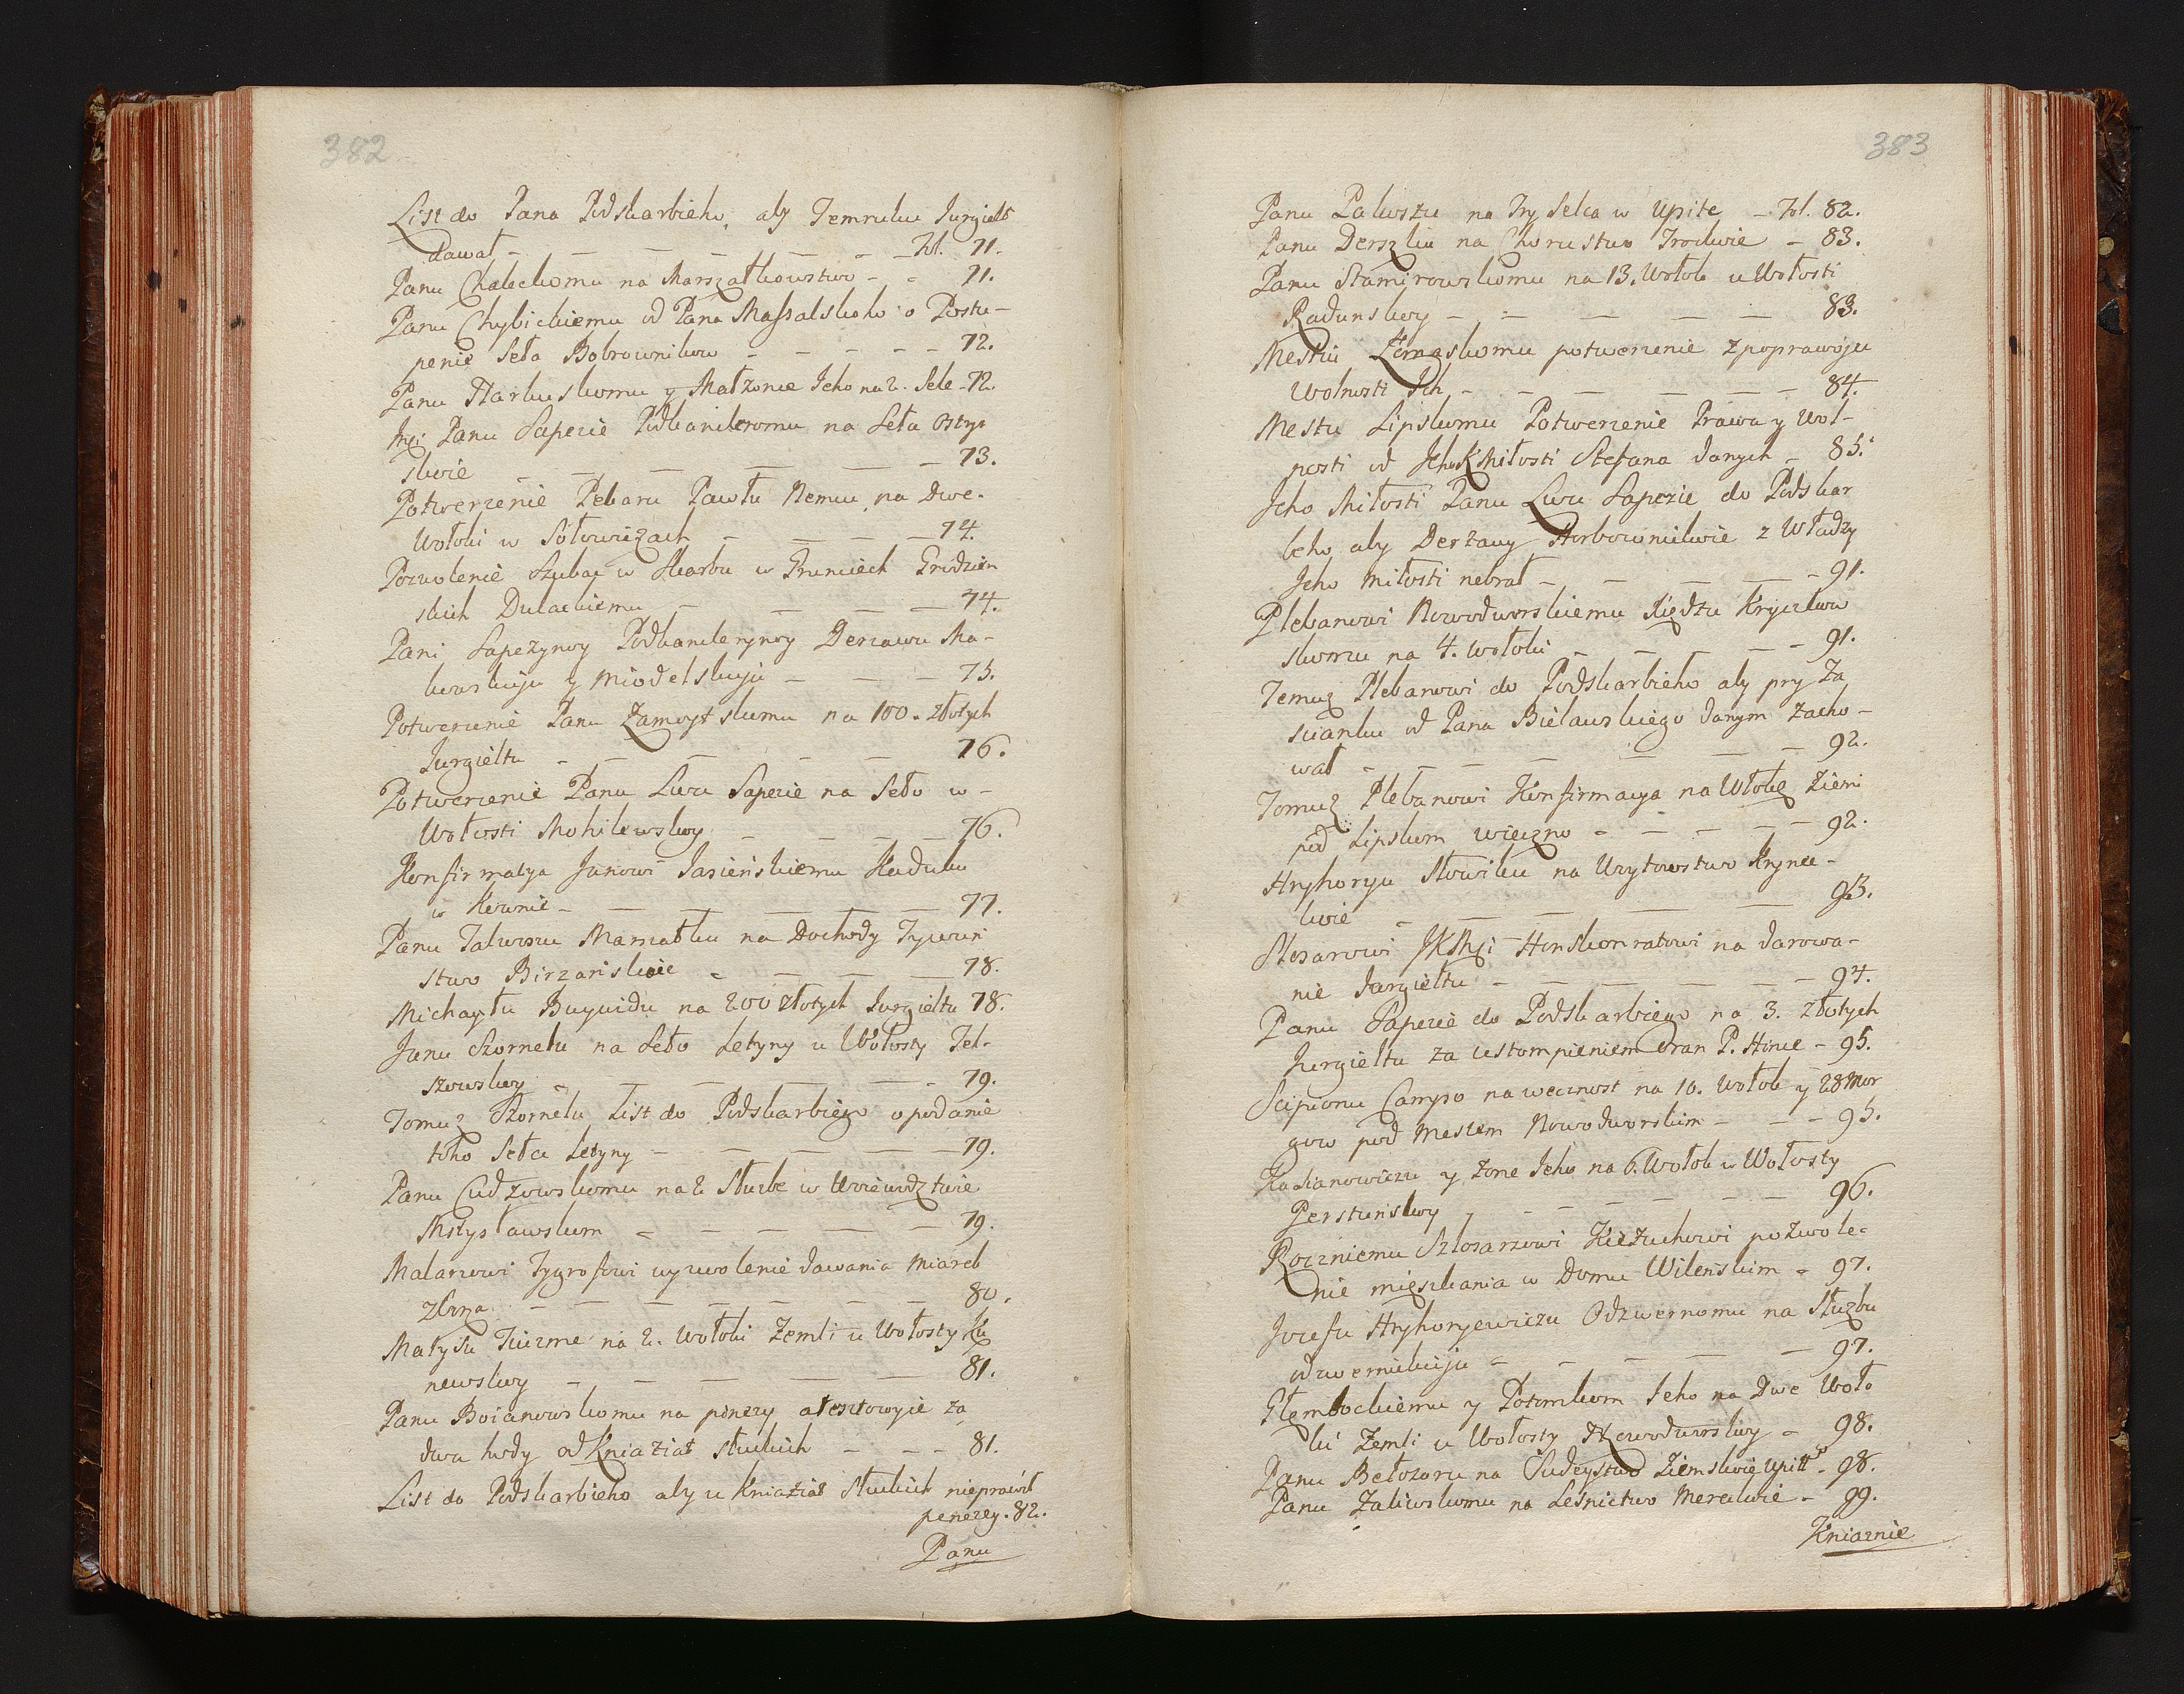 382
List do Pana Podskarbieho, aby Temruku Jurgielt
dawał - - - - - - - fol. 71.
Panu Chaleckomu na Marszałkowstwo - - 71.
Panu Chybickiemu od Pana Massalskoho o Postu-
penie Seła Bobrownikow - - - - - 72.
Panu Harbuskomu y Małżonce Jeho na 2. Sele - 72.
Panu Sapezie Podkancleromu na Seła Ostyn
skie - - - - - 73.
Potwerzenie Pekaru Pawłu Nemcu na Dwe
Wołoki w Sołowiczach - - - - 74.
Pozwolenie Szukać w Skarbu w Grunciech Grodzien
skich Dulackiemu - - - - 74.
Pani Sapeżynoy Podkancleryney Derzawu Ma-
kowskuju y Miodelskuju - - - 75.
Potwerzenie Panu Zamoystskomu na 100. złotych
Jurgieltu - - - - - - 76.
Potwerzenie Panu Lwu Sapezie na Seło w-
Wołosti Mohilewskoy - - - - 76.
Konfirmatya Janowi Jasieńskiemu Kaduku
w Kownie - - - - - 77.
Panu Talwoszu Marszałku na Dochody Tywun
stwo Birżańskoie - - - - 78.
Michayłu Buywidu na 200 złotych Jurgieltu 78.
Janu Szornelu na Seło Letyny u Wołosty Tel-
szowskoy - - - - - - 79.
Tomuż Szornelu List do Podskarbiego o podanie
toho Sełca Letyny - - - - - 79.
Panu Cudzowskomu na 2 Służbe w Woiewodztwie
Mstysławskom - - - - - 79.
Malarzowi Tygrofowi uzwolenie dawania Miarek
zboża - - - - - - - 80.
Matysu Tuizme na 2. Wołoki Zemli u Wołosty Ku
newskoy - - - - - 81.
Panu Boianowskomu na pinezy aresztowyie za
dwa hody od Kniażiat Słuckich - - - 81.
List do Podskarbieho aby u Kniażiat Słuckich nieprawił
penezey. 82.
Panu
383
Panu Paluszu na Try Selca w Upite - fol. 82.
Panu Derszliu na Chorustwo Trockoie - 83.
Panu Stamirowskomu na 13. Wołok u Wołosti
Radunskoy - - - - - 83.
Mestu potwerzenie z poprawoju
Wolnosti Jch - - - - - - 84.
Mestu Lipskomu Potwerzenie Prawa y Wol-
nosti od Jeho K Miłosti Stefana danych - 85.
Jeho Miłosti Panu Lwu Sapezie do Podskar
beho, aby Derżawy Horbownickoie z Władzy
Jeho miłosti nebrał - - - - - 91.
Plebanowi Nowodworskiemu Xiędzu Kryczkow
skomu na 4. Wołoki - - - - - 91.
Temuż Plebanowi do Podskarbieho aby pry Za
scianku od Pana Bielawskiego danym zacho-
wał - - - - - - - 92.
Tomuż Plebanowi Konfirmacya na Włokę Ziemi
pod Lipskom wieczno - - - - - 92.
Hryhoryu Słowiku na Woytowstwo Krynec-
koie - - - - - 93.
Slosarowi JKMsci Honskonratowi na darowa-
nie Jurgieltu - - - - - - 94.
Panu Sapezie do Podskarbiego na 3. złotych
Jurgieltu za ustompieniem Oran P. Hince - 95.
Scipionu Campo na wecznost na 10. Wołok y 28 Mor
gow pod Mestem Nowodworskim - - - 95.
Kasianowiczu y żone Jeho na 6. Wołok w Wołosty
Perstuńskoy - - - - - - 96.
Roczniemu Szlosarzowi Kieżuchowi pozwole-
nie mięszkania w Domu Wilenskim - 97.
Jozefu Hryhoryewiczu Odzwernomu na Służbu
odzwernickuju - - - - - 97.
Głembockiemu y Potomkom Jeho na Dwe Woło
ki Zemli u Wołosty Nowodworskoy - 98.
Panu Bełozoru na Sudeystwo Ziemskoie Upitt - 98.
Panu Zaliwskomu na Leśnictwo Mereckoie - 99.
Kniaznie